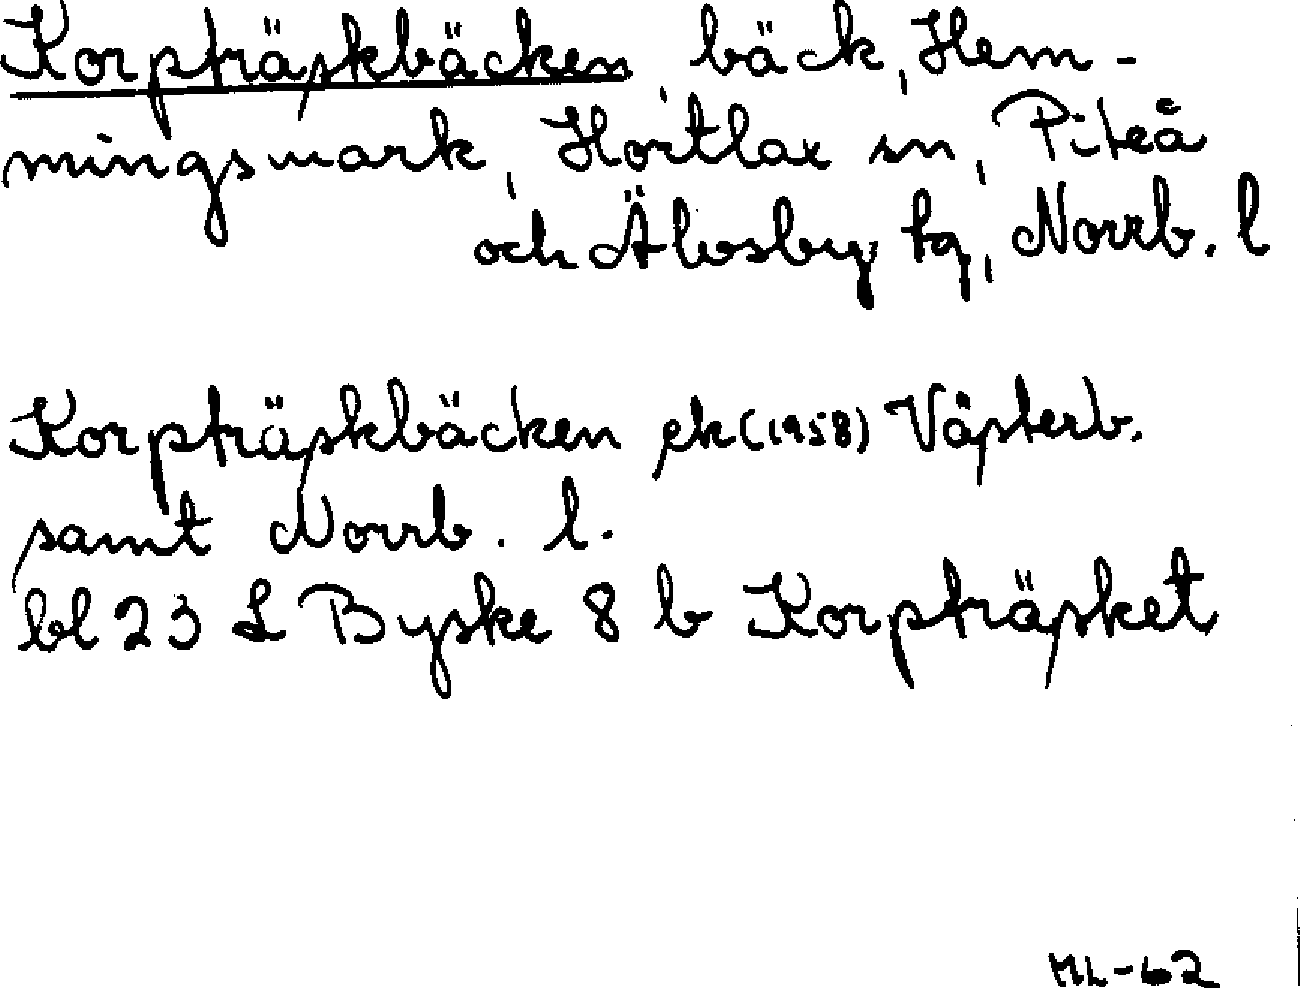 Korpträskbäcken, bäck, Hem-
mingsmark, Hortlax sn, Piteå
och Älvsby tg, Norrb. l
Korpträskbäcken ek (1958) Västerb.
samt Norrb. l.
bl 23 L Byske 8 b Korpträsket
ML-62